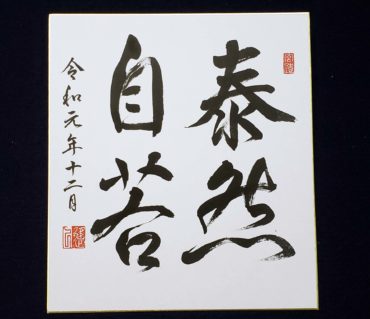 泰然
自若
令和元年十二月